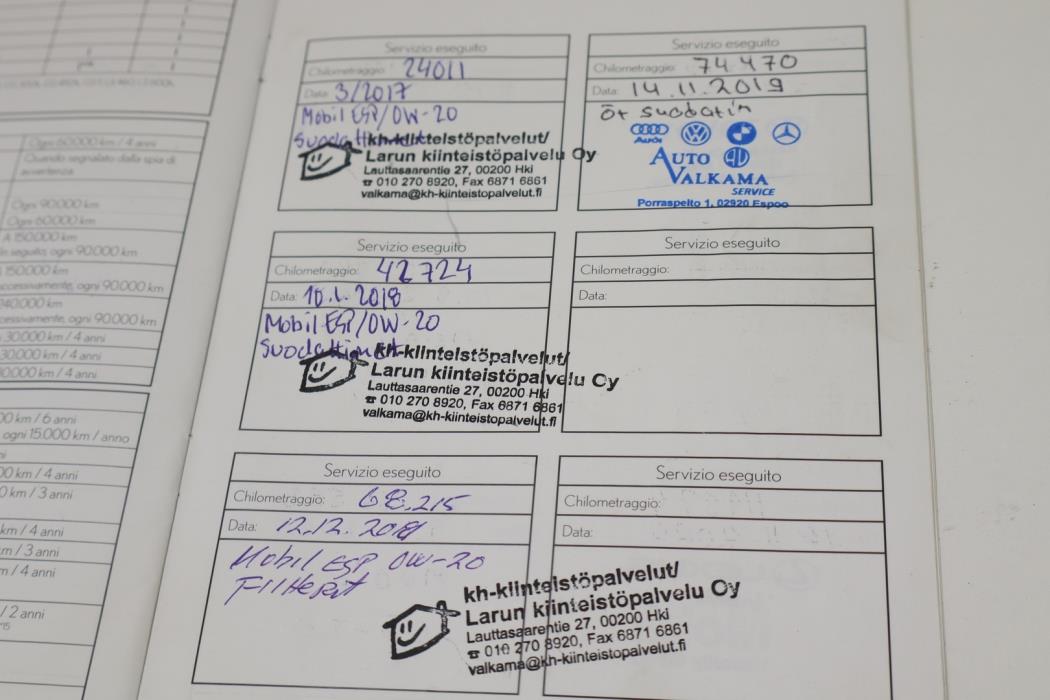 Ogni 60.000 km / 4 anni
Quando segnalato dalla spia di
avvertenza
Ogni 90.000 km
Ogni 60.000 km
A 150.000 km
in seguito, ogni 90.000 km
150.000 km
ccessivamente, ogni 90.000 km
240.000 km
cessivamente, ogni 90.000 km
30.000 km / 4 anni
30.000 km / 4 anni
0.000 km / 4 anni
00 km / 6 anni
ogni 15.000 km / anno
00 km / 4 anni
0 km / 3 anni
km / 4 anni
m / 3 anni
m / 4 anni
/ 2 anni
Servizio eseguito
Chilometraggio: 24011
Data: 3/2017
Mobil ESP/0W-20
kh-kiinteistöpalvelut/
Larun kiinteistöpalvelu Oy
Lauttasaarentie 27, 00200 Hki
☎ 010 270 8920, Fax 6871 6861
valkama@kh-kiinteistopalvelut.fi
Servizio eseguito
Chilometraggio: 42724
Data: 10.1.2018
Mobil ESP/0W-20
Suodattimet
kh-kiinteistöpalvelut/
Larun kiinteistöpalvelu Oy
Lauttasaarentie 27, 00200 Hki
☎ 010 270 8920, Fax 6871 6861
valkama@kh-kiinteistopalvelut.fi
Servizio eseguito
Chilometraggio: 68.215
Data: 12.12.2018
Mobil ESP 0W-20
kh-kiinteistöpalvelut/
Larun kiinteistöpalvelu Oy
Lauttasaarentie 27, 00200 Hki
☎ 010 270 8920, Fax 6871 6861
valkama@kh-kiinteistopalvelut.fi
Servizio eseguito
Chilometraggio: 74470
Data: 14.11.2019
öt suodatin
Audi
AUTO
VALKAMA
SERVICE
Porraspelto 1, 02920 Espoo
Servizio eseguito
Chilometraggio:
Data:
Servizio eseguito
Chilometraggio:
Data: